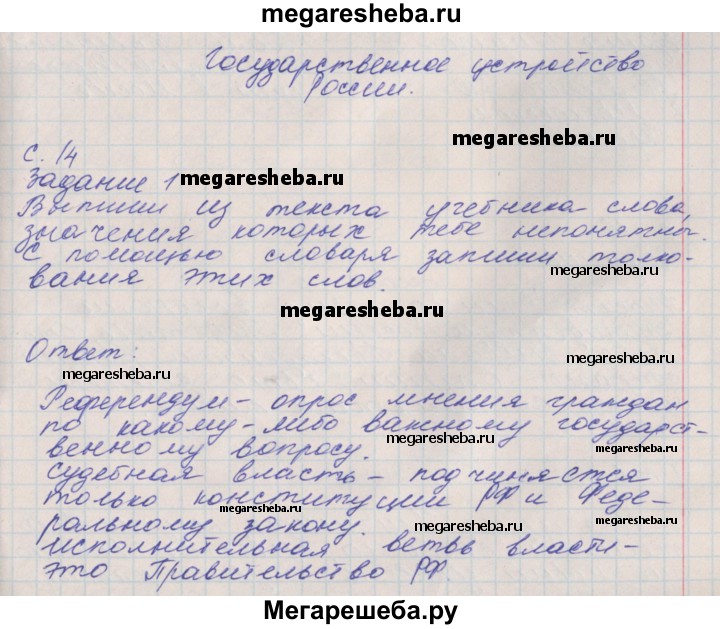 megaresheba.ru
Государственное устройство
России.
megaresheba.ru
с. 14
Задание 1
megaresheba.ru
Выпиши из текста учебника слова,
значения которых тебе непонятны.
С помощью словаря запиши толко-
megaresheba.ru
вания этих слов.
megaresheba.ru
Ответ:
megaresheba.ru
megaresheba.ru
Референдум - опрос мнения граждан
по какому-либо важному государст-
megaresheba.ru
венному вопросу.
megaresheba.ru
Судебная власть - подчиняется
только конституции РФ и Феде-
megaresheba.ru
ральному закону.
megaresheba.ru
megaresheba.ru
исполнительная ветвь власти -
это Правительство РФ.
Мегарешеба.ру